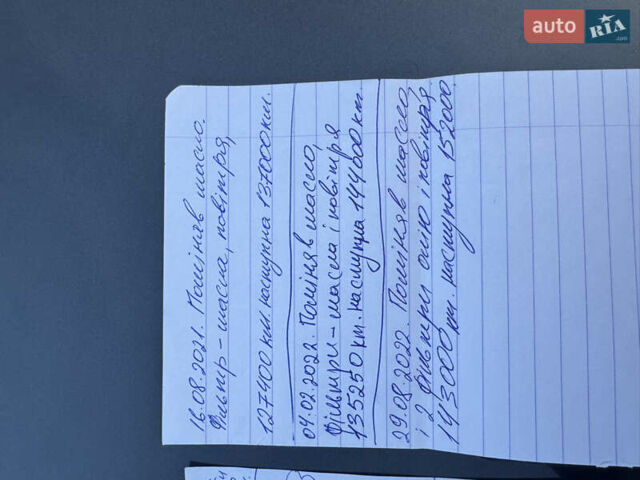 auto RIA .com
16.08.2021. Поміняв масло.
Фільтр - масла, повітря,
127400 км наступна 137000 км.
04.02.2022. Поміняв масло,
Фільтри - масла і повітря
135250 км. наступна 144000 км.
29.08.2022. Поміняв масло
і 2 фільтри олію і повітря
143000 км. наступна 152000.